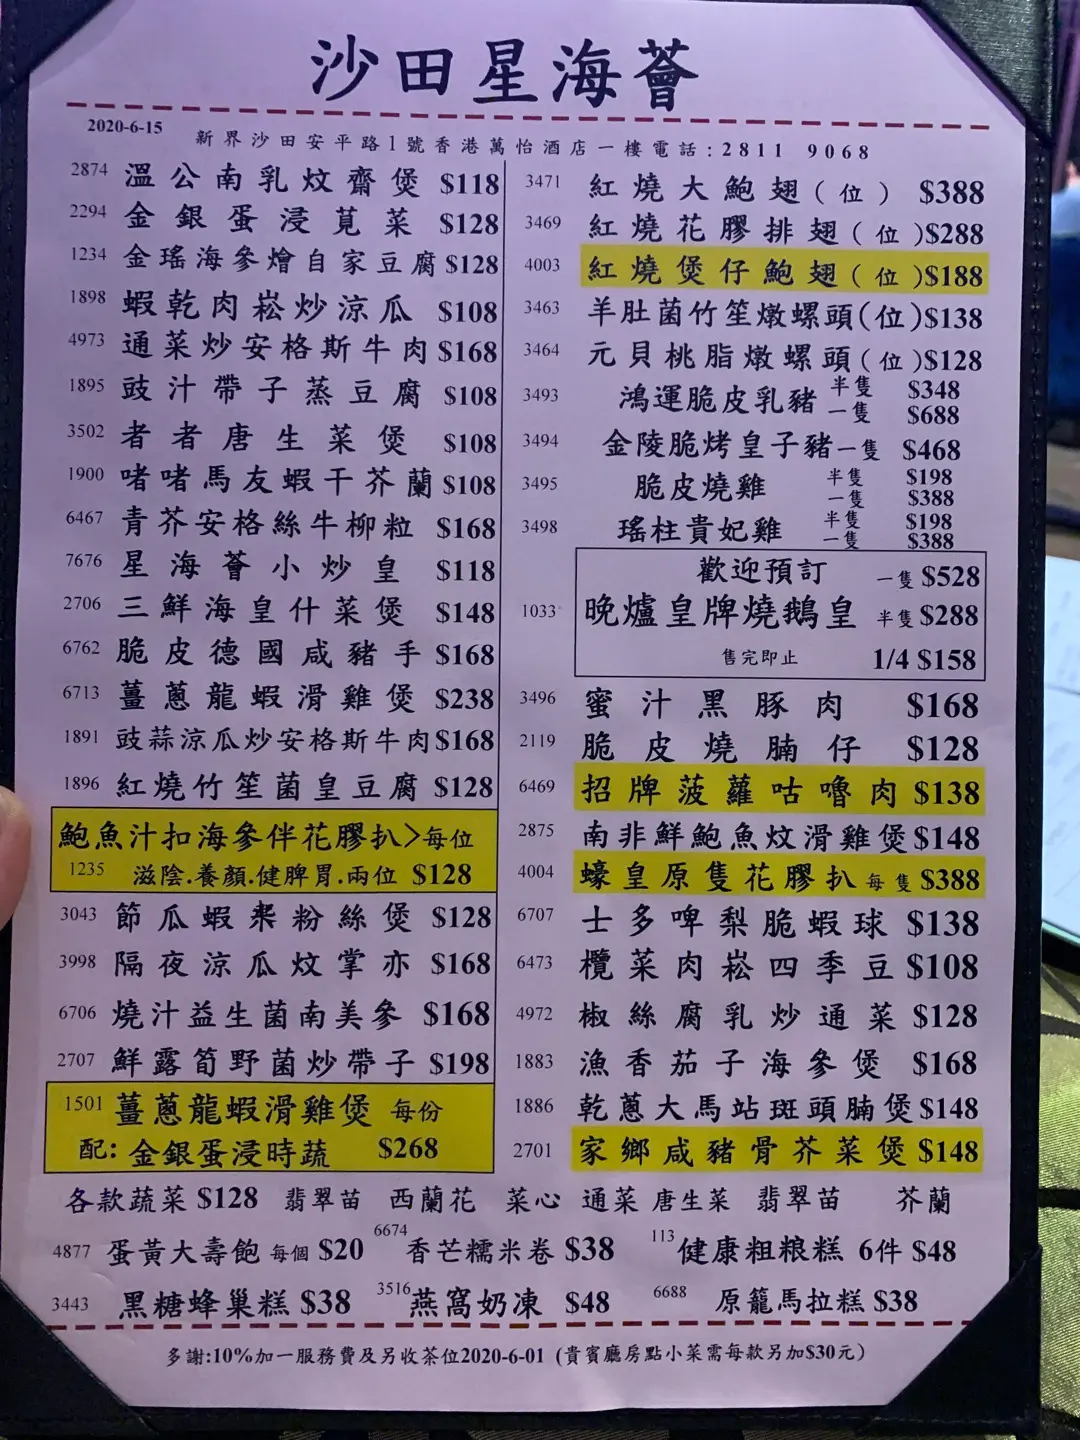 沙田星海薈
2020-6-15
新界沙田安平路1號香港萬怡酒店一樓電話:2811 9068
2874 溫公南乳炆齋煲 $118
2294 金銀蛋浸莧菜 $128
1234 金瑤海參燴自家豆腐 $128
1898 蝦乾肉崧炒涼瓜 $108
4973 通菜炒安格斯牛肉 $168
1895 豉汁帶子蒸豆腐 $108
3502 者者唐生菜煲 $108
1900 啫啫馬友蝦干芥蘭 $108
6467 青芥安格絲牛柳粒 $168
7676 星海薈小炒皇 $118
2706 三鮮海皇什菜煲 $148
6762 脆皮德國咸豬手 $168
6713 薑蔥龍蝦滑雞煲 $238
1891 豉蒜涼瓜炒安格斯牛肉 $168
1896 紅燒竹笙菌皇豆腐 $128
鮑魚汁扣海參伴花膠扒>每位
1235 滋陰.養顏.健脾胃.兩位 $128
3043 節瓜蝦米粉絲煲 $128
3998 隔夜涼瓜炆掌亦 $168
6706 燒汁益生菌南美參 $168
2707 鮮露筍野菌炒帶子 $198
1501 薑蔥龍蝦滑雞煲 每份
配:金銀蛋浸時蔬 $268
3471 紅燒大鮑翅(位) $388
3469 紅燒花膠排翅(位) $288
4003 紅燒煲仔鮑翅(位) $188
3463 羊肚菌竹笙燉螺頭(位) $138
3464 元貝桃脂燉螺頭(位) $128
3493 鴻運脆皮乳豬 半隻 $348
一隻 $688
3494 金陵脆烤皇子豬一隻 $468
3495 脆皮燒雞 半隻 $198
一隻 $388
3498 瑤柱貴妃雞 半隻 $198
一隻 $388
歡迎預訂 一隻 $528
1033 晚爐皇牌燒鵝皇 半隻 $288
售完即止 1/4 $158
3496 蜜汁黑豚肉 $168
2119 脆皮燒腩仔 $128
6469 招牌菠蘿咕嚕肉 $138
2875 南非鮮鮑魚炆滑雞煲 $148
4004 蠔皇原隻花膠扒 每隻 $388
6707 士多啤梨脆蝦球 $138
6473 欖菜肉崧四季豆 $108
4972 椒絲腐乳炒通菜 $128
1883 漁香茄子海參煲 $168
1886 乾蔥大馬站斑頭腩煲 $148
2701 家鄉咸豬骨芥菜煲 $148
各款蔬菜 $128 翡翠苗 西蘭花 菜心 通菜 唐生菜 翡翠苗 芥蘭
4877 蛋黃大壽飽 每個 $20 6674 香芒糯米卷 $38 113 健康粗粮糕 6件 $48
3443 黑糖蜂巢糕 $38 3516 燕窩奶凍 $48 6688 原籠馬拉糕 $38
多謝:10%加一服務費及另收茶位2020-6-01 (貴賓廳房點小菜需每款另加$30元)